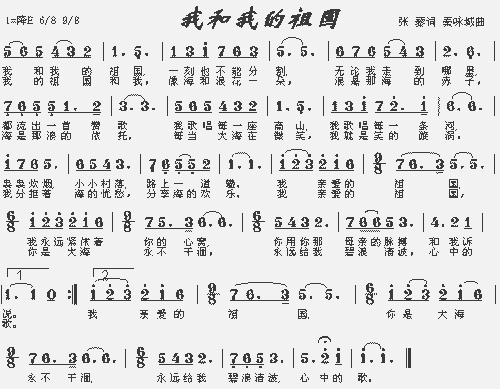 1=降E 6/8 9/8 我和我的祖国 张 藜词 秦咏诚曲
5 6 5 4 3 2 | 1. 5. | 1 3 i 7 6 3 | 5. 5. | 6 7 6 5 4 3 | 2. 6. |
我 和我 的 祖国, 一刻也不能分 割, 无论我走到 哪里,
我 的 祖 国 和我, 像海和浪花一 朵, 浪是那海的 赤子,
7 6 5 5 1. 2 | 3. 3. | 5 6 5 4 3 2 | 1. 5. | 1 3 i 7 2. i | 6. 6. |
都流出一首 赞歌 我歌唱每一座 高山, 我歌唱每一条 河,
海是那浪的 依托, 每当大海在 微笑, 我就是笑的 漩涡,
i 7 6 5. | 6 5 4 3. | 7 6 5 5 2 | 1. 1. | i 2 3 2 i 6 | 9/8 7 6. 3 5. 5. |
袅袅炊烟, 小小村落, 路上一道 辙。 我 亲爱的 祖 国,
我分担着 海的忧愁, 分享海的欢 乐。 我 亲爱的 祖 国,
6/8 i 2 3 2 i 6 | 9/8 7 5. 3 6. 6. | 6/8 5 4 3 2. | 7 6 6 5 3 | 4. 2 1 |
我永远紧依着 你的 心窝, 你用你那 母亲的脉搏 和我诉
你是大海 永不 干涸, 永远给我 碧浪清波, 心中的
1 2
1. 1 0 :‖ i 2 3 2 i 6 | 9/8 7 6. 3 5. 5. | 6/8 i 2 3 2 i 6 |
说。 我 亲爱的 祖 国, 你是大海
歌。
9/8 7 6. 3 6. 6. | 6/8 5 4 3 2. | 7 6 5 | 5. 2 i | i. i. ‖
永不 干涸, 永远给我 碧浪清波, 心中的 歌。